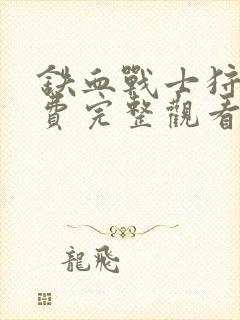 鉄血戰士狩
費完整觀看
龍飛